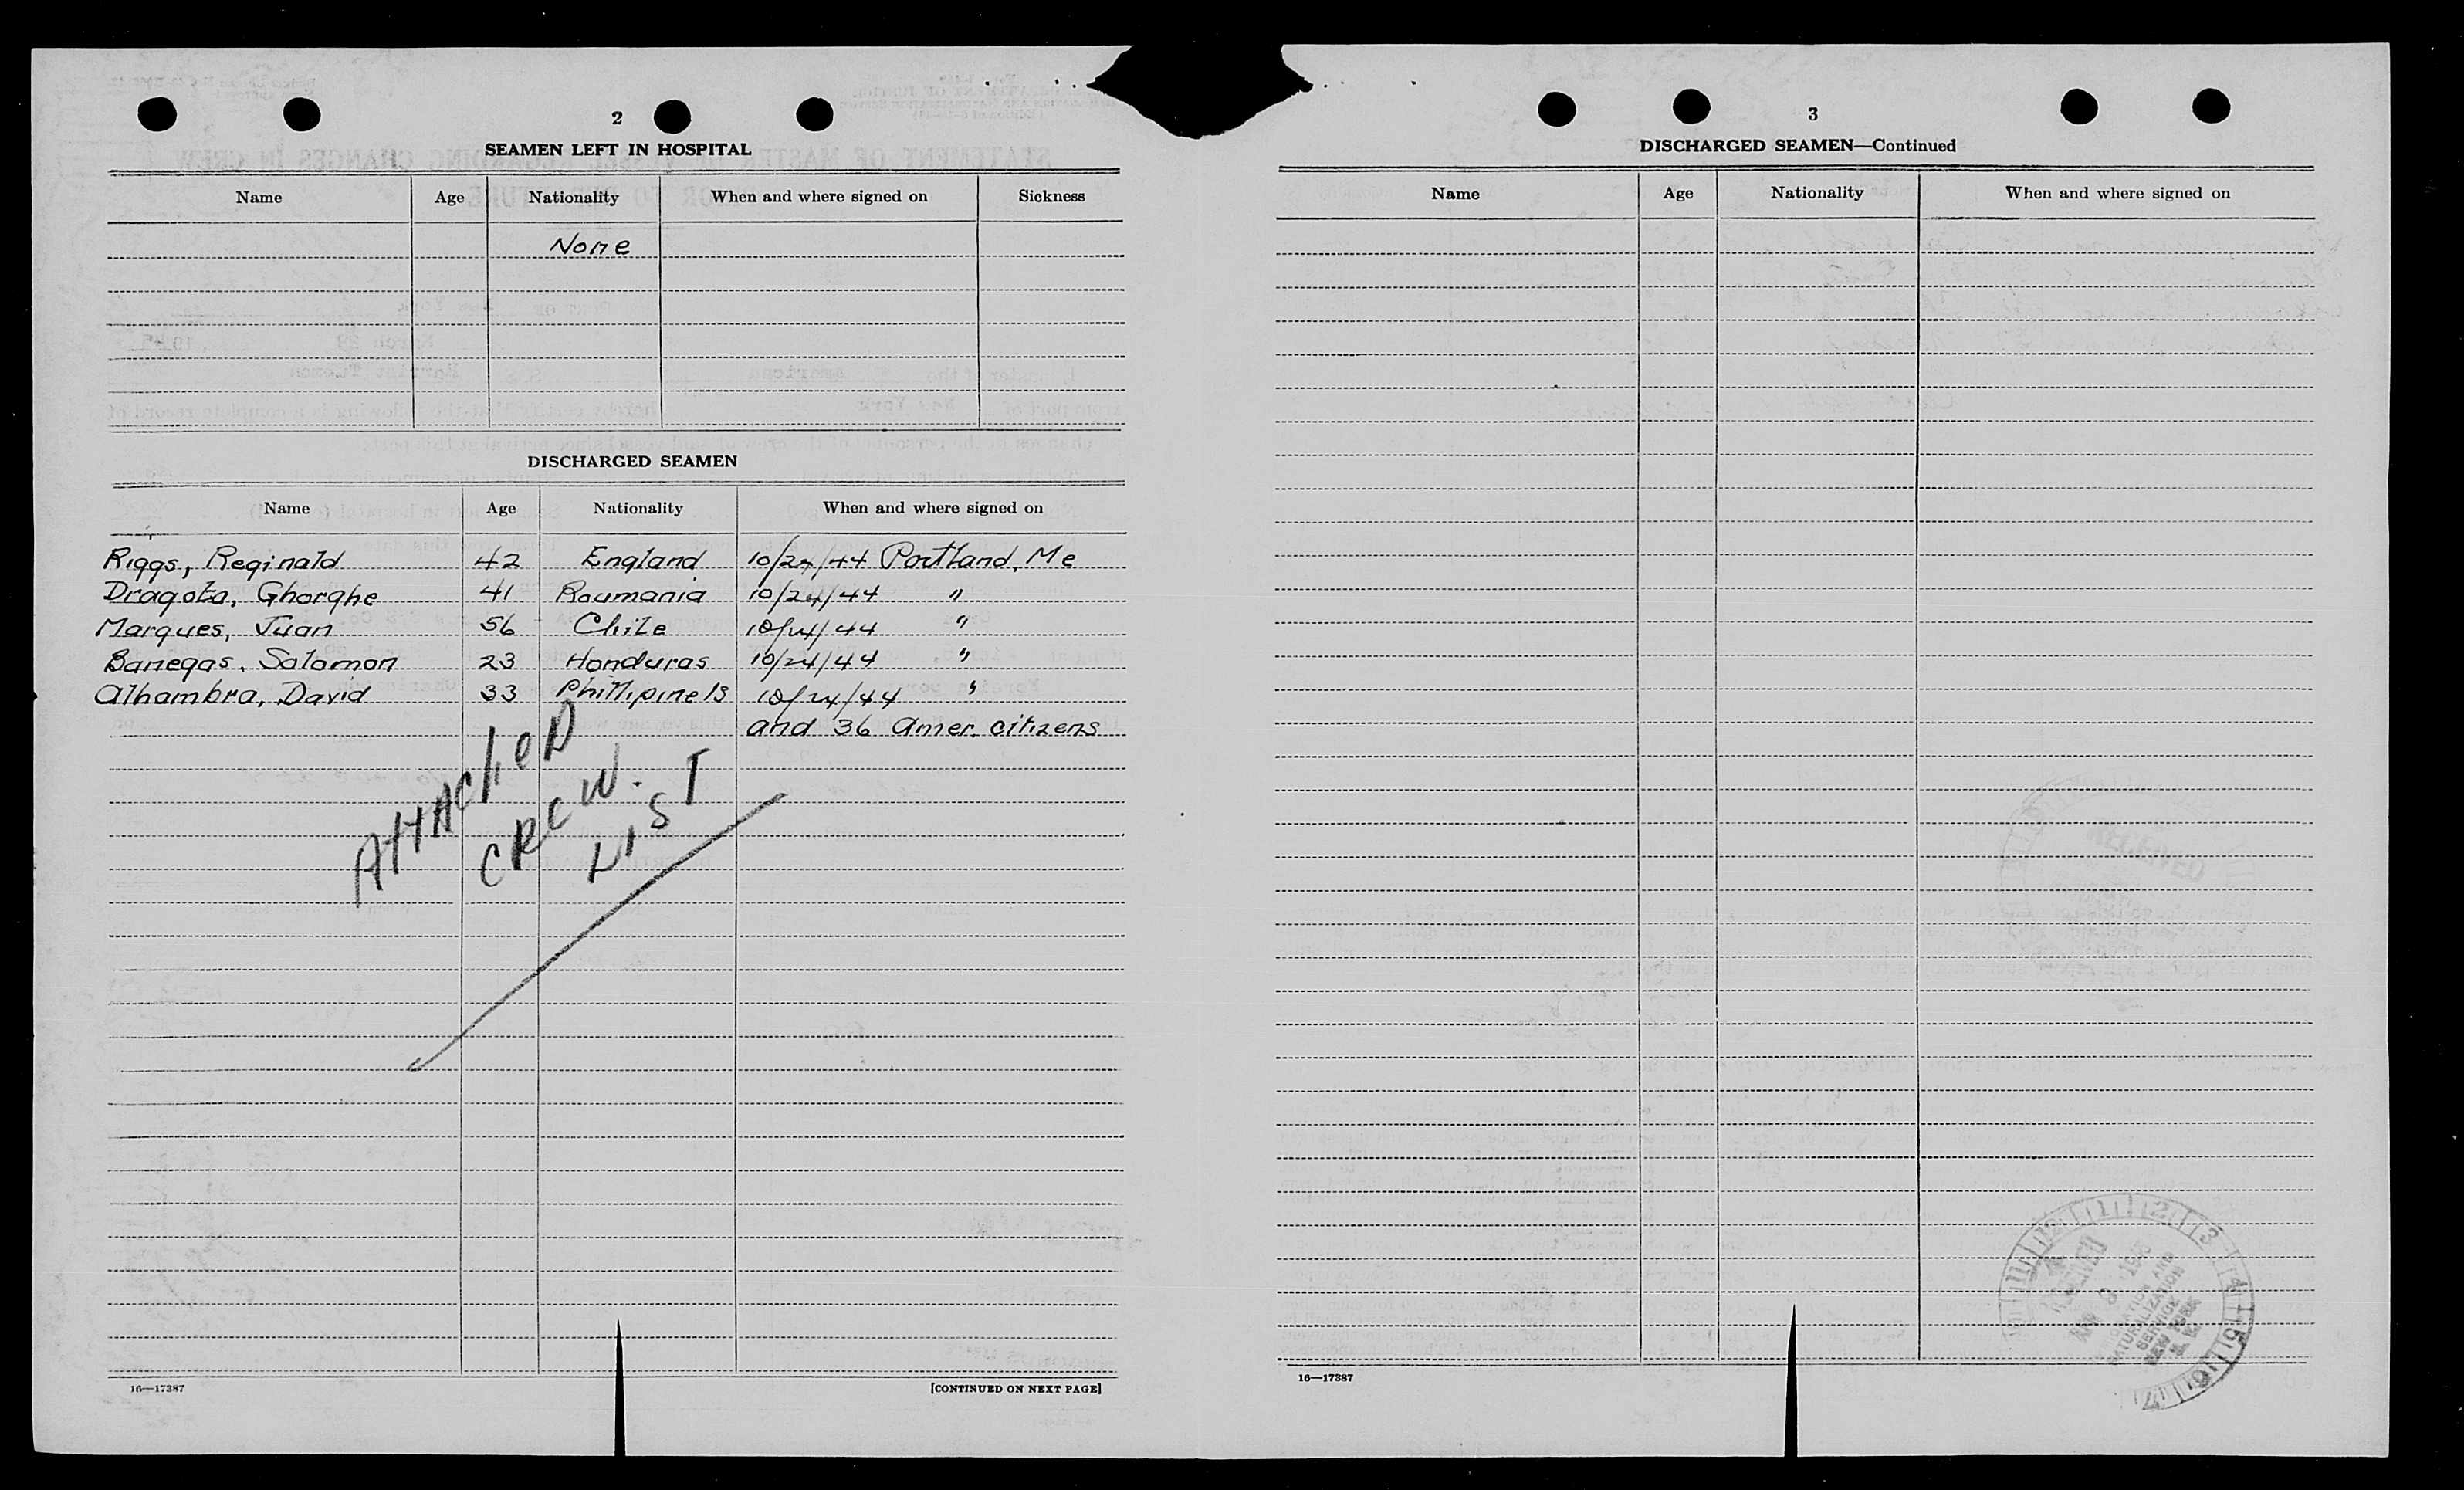 2
SEAMEN LEFT IN HOSPITAL
Name Age Nationality When and where signed on Sickness
None
DISCHARGED SEAMEN
Name Age Nationality When and where signed on
Riggs, Reginald 42 England 10/24/44 Portland, Me
Dragota, Ghorghe 41 Roumania 10/24/44 "
Marques, Juan 56 Chile 10/24/44 "
Banegas, Salomon 23 Honduras 10/24/44 "
Alhambra, David 33 Phillipine Is 10/24/44 "
and 36 Amer. citizens
ATTACHED
CREW.
LIST
16—17387 [CONTINUED ON NEXT PAGE]
3
DISCHARGED SEAMEN—Continued
Name Age Nationality When and where signed on
RECEIVED
NATURALIZATION
SERVICE
NEW YORK
16—17387